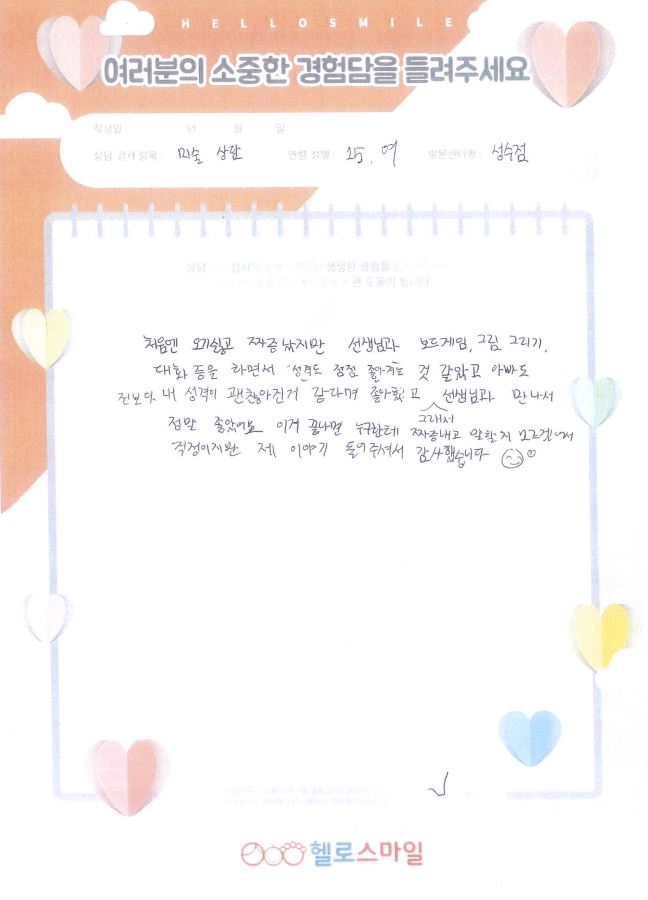 HELLOSMILE
여러분의 소중한 경험담을 들려주세요
작성일 : 년 월 일
상담 검사 항목 : 미술 상담 연령 성별 : 25, 여 방문센터명 : 성수점
상담 검사 생생한 경험들을
큰 도움이 됩니다
처음엔 오기싫고 짜증 났지만 선생님과 보드게임, 그림 그리기,
대화 등을 하면서 성격도 점점 좋아지는 것 같았고 아빠도
전보다 내 성격이 괜찮아진거 같다며 좋아했고 선생님과 만나서
그래서
정말 좋았어요 이거 끝나면 누구한테 짜증내고 말할지 모르겠어서
걱정이지만 제 이야기 들어주셔서 감사했습니다
헬로스마일